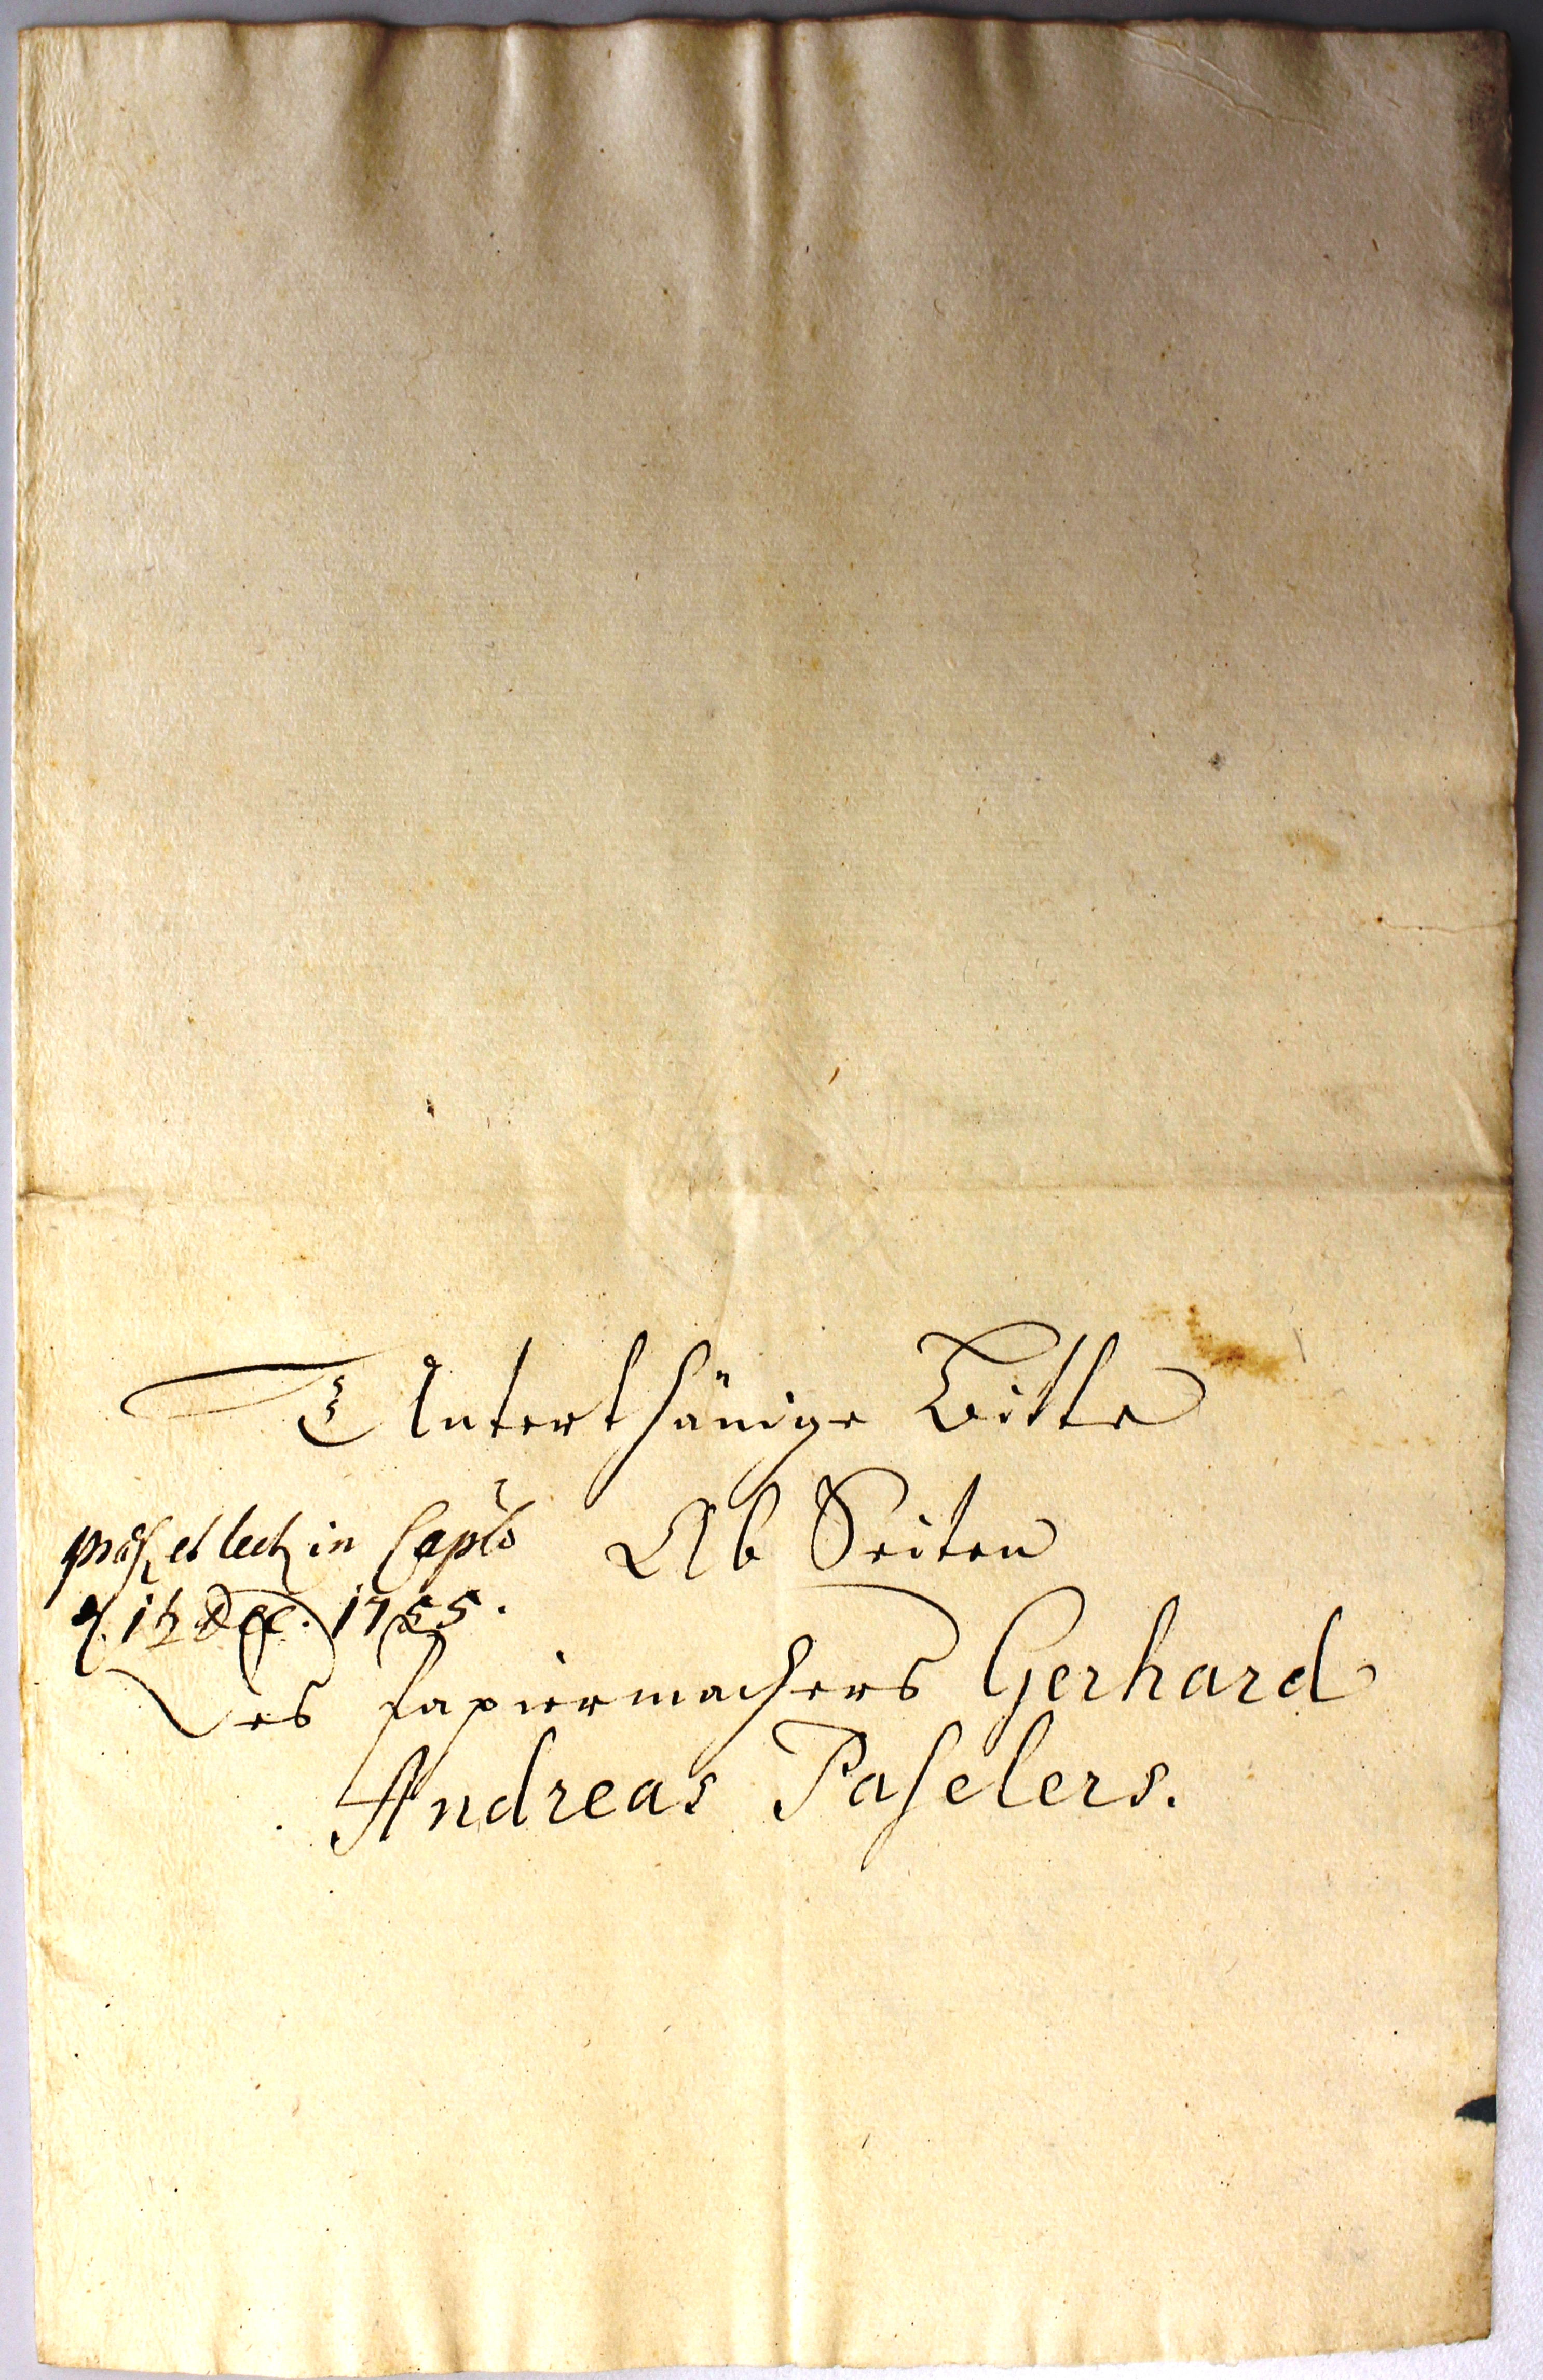 Unterthänige Bitte
Ab Seiten
præs. et lect. in Caplo
d. 12 Dec. 1755.
Des Papiermachers Gerhard
Andreas Paſelers.